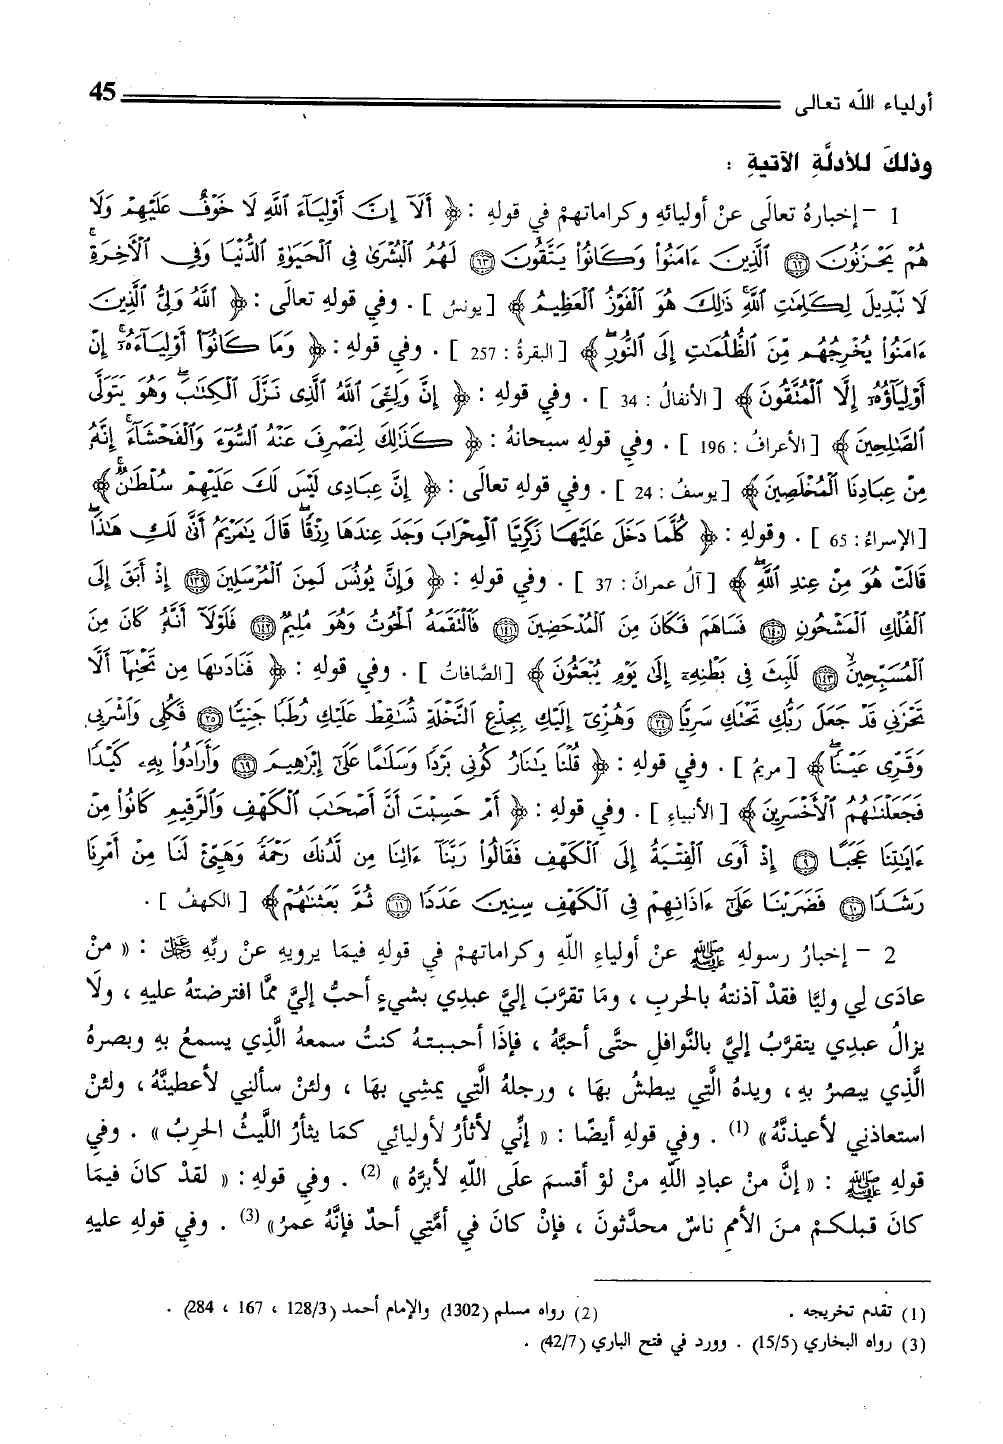 أولياء اللّه تعالى 45
وذلكَ للأدلَّةِ الآتيةِ :
1 - إخبارهُ تعالَى عنْ أوليائهِ وكراماتهمْ في قولهِ : ﴿ أَلَآ إِنَّ أَوْلِيَآءَ ٱللَّهِ لَا خَوْفٌ عَلَيْهِمْ وَلَا
هُمْ يَحْزَنُونَ ﴿٦٢﴾ ٱلَّذِينَ ءَامَنُواْ وَكَانُواْ يَتَّقُونَ ﴿٦٣﴾ لَهُمُ ٱلْبُشْرَىٰ فِى ٱلْحَيَوٰةِ ٱلدُّنْيَا وَفِى ٱلْأَخِرَةِ ۚ
لَا تَبْدِيلَ لِكَلِمَٰتِ ٱللَّهِ ۚ ذَٰلِكَ هُوَ ٱلْفَوْزُ ٱلْعَظِيمُ ﴾ [ يونسُ ] . وفي قولهِ تعالَى : ﴿ ٱللَّهُ وَلِىُّ ٱلَّذِينَ
ءَامَنُواْ يُخْرِجُهُم مِّنَ ٱلظُّلُمَٰتِ إِلَى ٱلنُّورِ ۖ ﴾ [ البقرةُ : 257 ] . وفي قولهِ : ﴿ وَمَا كَانُوٓاْ أَوْلِيَآءَهُۥٓ ۚ إِنْ
أَوْلِيَآؤُهُۥٓ إِلَّا ٱلْمُتَّقُونَ ﴾ [ الأنفالُ : 34 ] . وفي قولهِ : ﴿ إِنَّ وَلِـِّۧىَ ٱللَّهُ ٱلَّذِى نَزَّلَ ٱلْكِتَٰبَ ۖ وَهُوَ يَتَوَلَّى
ٱلصَّٰلِحِينَ ﴾ [ الأعرافُ : 196 ] . وفي قولهِ سبحانهُ : ﴿ كَذَٰلِكَ لِنَصْرِفَ عَنْهُ ٱلسُّوٓءَ وَٱلْفَحْشَآءَ ۚ إِنَّهُۥ
مِنْ عِبَادِنَا ٱلْمُخْلَصِينَ ﴾ [ يوسفُ : 24 ] . وفي قولهِ تعالَى : ﴿ إِنَّ عِبَادِى لَيْسَ لَكَ عَلَيْهِمْ سُلْطَٰنٌ ۚ ﴾
[ الإسراءُ : 65 ] . وقولهِ : ﴿ كُلَّمَا دَخَلَ عَلَيْهَا زَكَرِيَّا ٱلْمِحْرَابَ وَجَدَ عِندَهَا رِزْقًا ۖ قَالَ يَٰمَرْيَمُ أَنَّىٰ لَكِ هَٰذَا ۖ
قَالَتْ هُوَ مِنْ عِندِ ٱللَّهِ ۖ ﴾ [ آلُ عمرانَ : 37 ] . وفي قولهِ : ﴿ وَإِنَّ يُونُسَ لَمِنَ ٱلْمُرْسَلِينَ ﴿١٣٩﴾ إِذْ أَبَقَ إِلَى
ٱلْفُلْكِ ٱلْمَشْحُونِ ﴿١٤٠﴾ فَسَاهَمَ فَكَانَ مِنَ ٱلْمُدْحَضِينَ ﴿١٤١﴾ فَٱلْتَقَمَهُ ٱلْحُوتُ وَهُوَ مُلِيمٌ ﴿١٤٢﴾ فَلَوْلَآ أَنَّهُۥ كَانَ مِنَ
ٱلْمُسَبِّحِينَ ۙ ﴿١٤٣﴾ لَلَبِثَ فِى بَطْنِهِۦٓ إِلَىٰ يَوْمِ يُبْعَثُونَ ﴾ [ الصَّافاتُ ] . وفي قولهِ : ﴿ فَنَادَىٰهَا مِن تَحْتِهَآ أَلَّا
تَحْزَنِى قَدْ جَعَلَ رَبُّكِ تَحْتَكِ سَرِيًّا ﴿٢٤﴾ وَهُزِّىٓ إِلَيْكِ بِجِذْعِ ٱلنَّخْلَةِ تُسَٰقِطْ عَلَيْكِ رُطَبًا جَنِيًّا ﴿٢٥﴾ فَكُلِى وَٱشْرَبِى
وَقَرِّى عَيْنًا ۖ ﴾ [ مريمُ ] . وفي قولهِ : ﴿ قُلْنَا يَٰنَارُ كُونِى بَرْدًا وَسَلَٰمًا عَلَىٰٓ إِبْرَٰهِيمَ ﴿٦٩﴾ وَأَرَادُواْ بِهِۦ كَيْدًا
فَجَعَلْنَٰهُمُ ٱلْأَخْسَرِينَ ﴾ [ الأنبياءِ ] . وفي قولهِ : ﴿ أَمْ حَسِبْتَ أَنَّ أَصْحَٰبَ ٱلْكَهْفِ وَٱلرَّقِيمِ كَانُواْ مِنْ
ءَايَٰتِنَا عَجَبًا ﴿٩﴾ إِذْ أَوَى ٱلْفِتْيَةُ إِلَى ٱلْكَهْفِ فَقَالُواْ رَبَّنَآ ءَاتِنَا مِن لَّدُنكَ رَحْمَةً وَهَيِّئْ لَنَا مِنْ أَمْرِنَا
رَشَدًا ﴿١٠﴾ فَضَرَبْنَا عَلَىٰٓ ءَاذَانِهِمْ فِى ٱلْكَهْفِ سِنِينَ عَدَدًا ﴿١١﴾ ثُمَّ بَعَثْنَٰهُمْ ﴾ [ الكهفُ ] .
2 - إخبارُ رسولهِ ﷺ عنْ أولياءِ اللّهِ وكراماتهمْ في قولهِ فيمَا يرويهِ عنْ ربِّهِ ﷻ : « منْ
عادَى لِي وليًّا فقدْ آذنتهُ بالحربِ ، ومَا تقرَّبَ إليَّ عبدِي بشيءٍ أحبُّ إليَّ ممَّا افترضتهُ عليهِ ، ولَا
يزالُ عبدِي يتقرَّبُ إليَّ بالنَّوافلِ حتَّى أحبَّهُ ، فإذَا أحببتهُ كنتُ سمعهُ الَّذِي يسمعُ بهِ وبصرهُ
الَّذِي يبصرُ بهِ ، ويدهُ الَّتِي يبطشُ بهَا ، ورجلهُ الَّتِي يمشِي بهَا ، ولئنْ سألنِي لأعطينَّهُ ، ولئنْ
استعاذنِي لأعيذنَّهُ» (1) . وفي قولهِ أيضًا : « إنِّي لأثأرُ لأوليائِي كمَا يثأرُ اللَّيثُ الحربُ » . وفي
قولهِ ﷺ : « إنَّ منْ عبادِ اللّهِ منْ لوْ أقسمَ علَى اللّهِ لأبرَّهُ » (2) . وفي قولهِ : « لقدْ كانَ فيمَا
كانَ قبلكمْ منَ الأممِ ناسٌ محدَّثونَ ، فإنْ كانَ في أمَّتِي أحدٌ فإنَّهُ عمرُ» (3) . وفي قولهِ عليهِ
(1) تقدم تخريجه . (2) رواه مسلم (1302) والإمام أحمد (128/3 ، 167 ، 284) .
(3) رواه البخاري (15/5) . وورد في فتح الباري (42/7) .